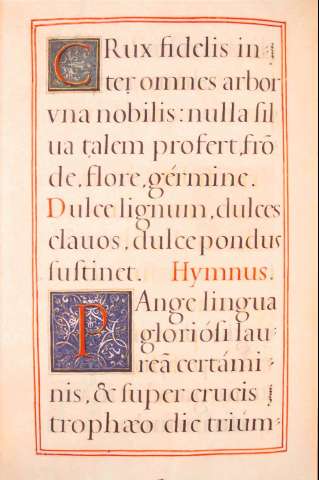 CRux fidelis in
ter omnes arbor
vna nobilis: nulla sil
ua talem profert, frõ
de, flore, gérmine.
Dulce lignum, dulces
clauos, dulce pondus
sustinet. Hymnus.
PAnge lingua
gloriósi lau
reã certámi
nis, & super crucis
trophæo dic triúm